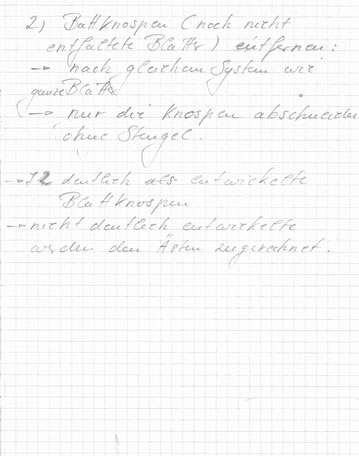 2) Battknospen (noch nicht
entfaltete Blätter) entfernen:
→ nach gleichem System wie
ganze Blätter
→ nur die Knospen abschneiden
ohne Stengel.
→ deutlich als entwickelte
Blattknospen
→ nicht deutlich entwickelte
werden den Ästen zugerechnet.